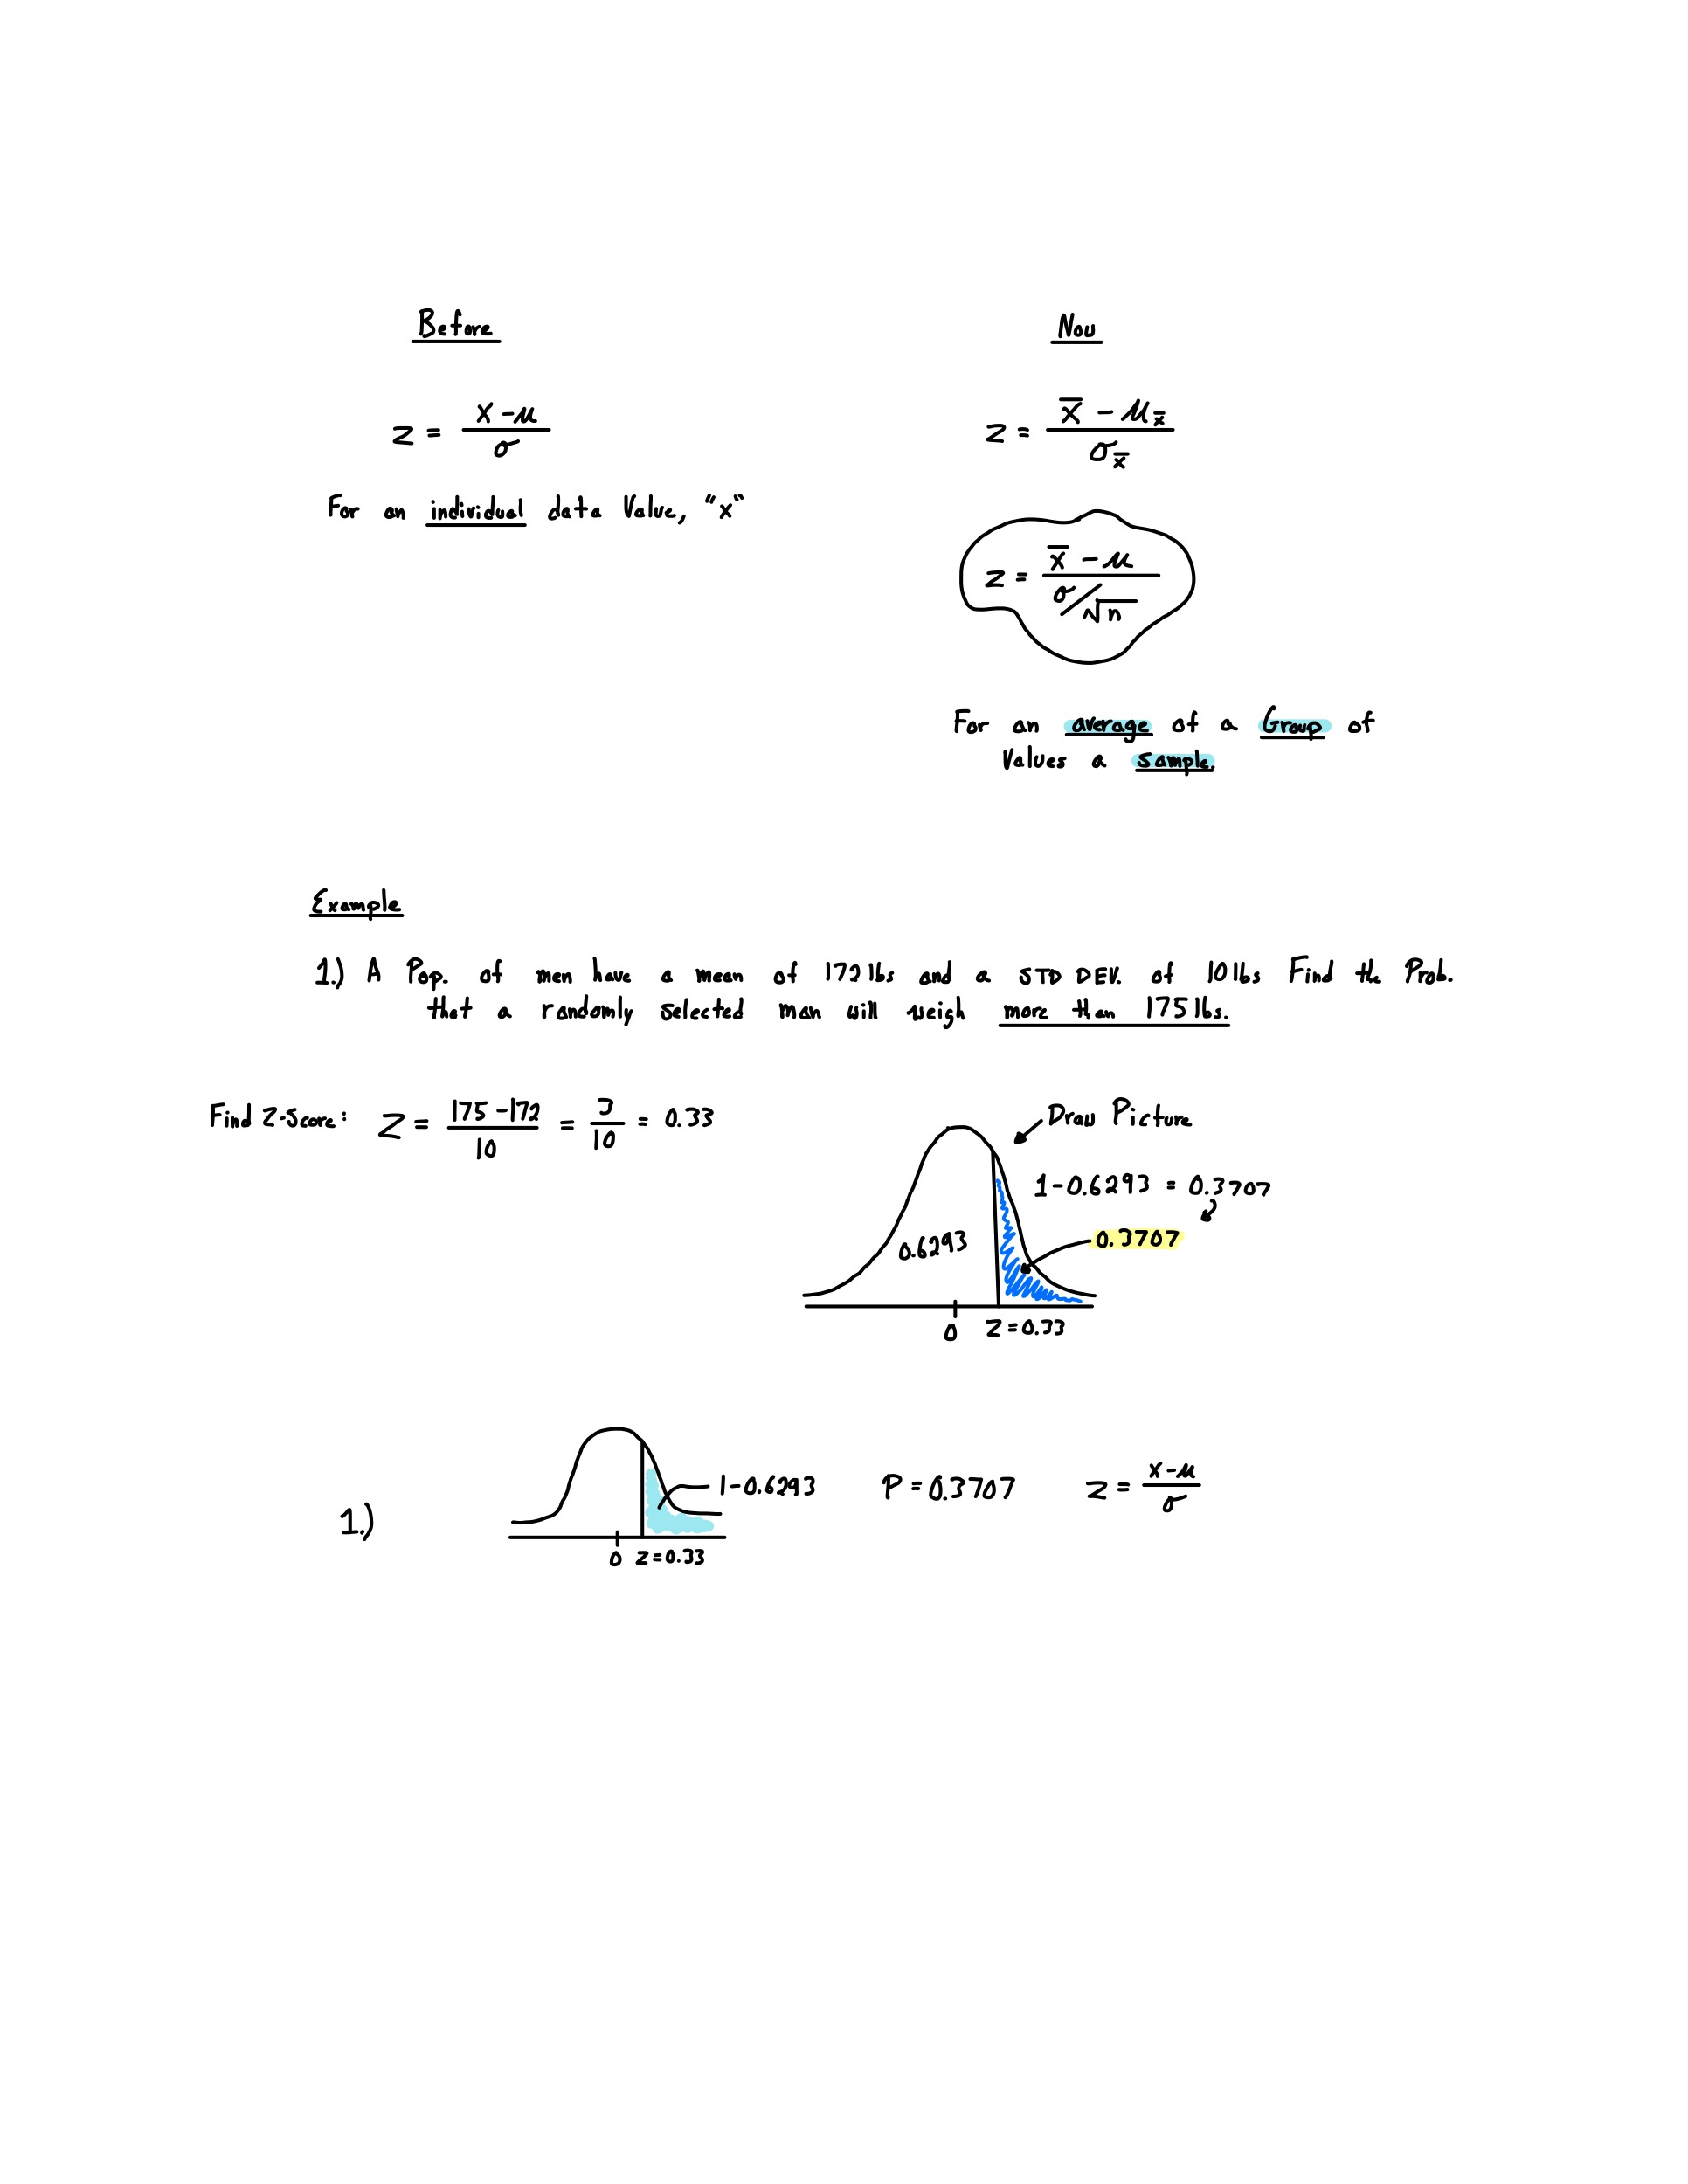 Before
Now
z = x - μ / σ
z = x̄ - μx̄ / σx̄
For an individual data Value, "x"
z = x̄ - μ / σ/√n
For an average of a Group of
Values a sample.
Example
1.) A Pop. of men have a mean of 172 lbs and a STD DEV. of 10 lbs Find the Prob.
that a randomly selected man will weigh more than 175 lbs.
Find Z-Score: Z = 175 - 172 / 10 = 3 / 10 = 0.33
Draw Picture
1 - 0.6293 = 0.3707
0.3707
0.6293
0 Z = 0.33
1.)
1 - 0.6293 P = 0.3707 z = x - μ / σ
0 z = 0.33